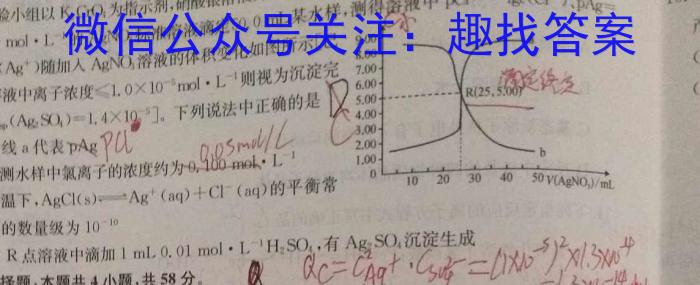 验小组以 K₂CrO₄ 为指示剂,硝酸银
mol·L⁻¹
某水样,测得溶液中
pAg=
微信公众号关注：趣找答案
(Ag⁺)随加入 AgNO₃ 溶液的体积变化如图所示
液中离子浓度≤1.0×10⁻⁵mol·L⁻¹则视为沉淀完
(Ag₂SO₄)=1.4×10⁻⁵]。下列说法中正确的是
线 a 代表 pAg pCl
0.05mol/L
测水样中氯离子的浓度约为 0.100 mol·L⁻¹
温下,AgCl(s)⇌Ag⁺(aq)+Cl⁻(aq)的平衡常
的数量级为 10⁻¹⁰
R 点溶液中滴加 1 mL 0.01 mol·L⁻¹H₂SO₄,有 Ag₂SO₄ 沉淀生成
择题:本题共 4 小题,共 58 分。
9.00
8.00
7.00
6.00
5.00
4.00
3.00
2.00
1.00
0
10 20 30 40 50 V(AgNO₃)/mL
R(25,5.00)
滴定终点
b
D
C
Qc=c²Ag⁺·cSO₄²⁻=(1×10⁻⁵)²×1.3×10⁻⁴